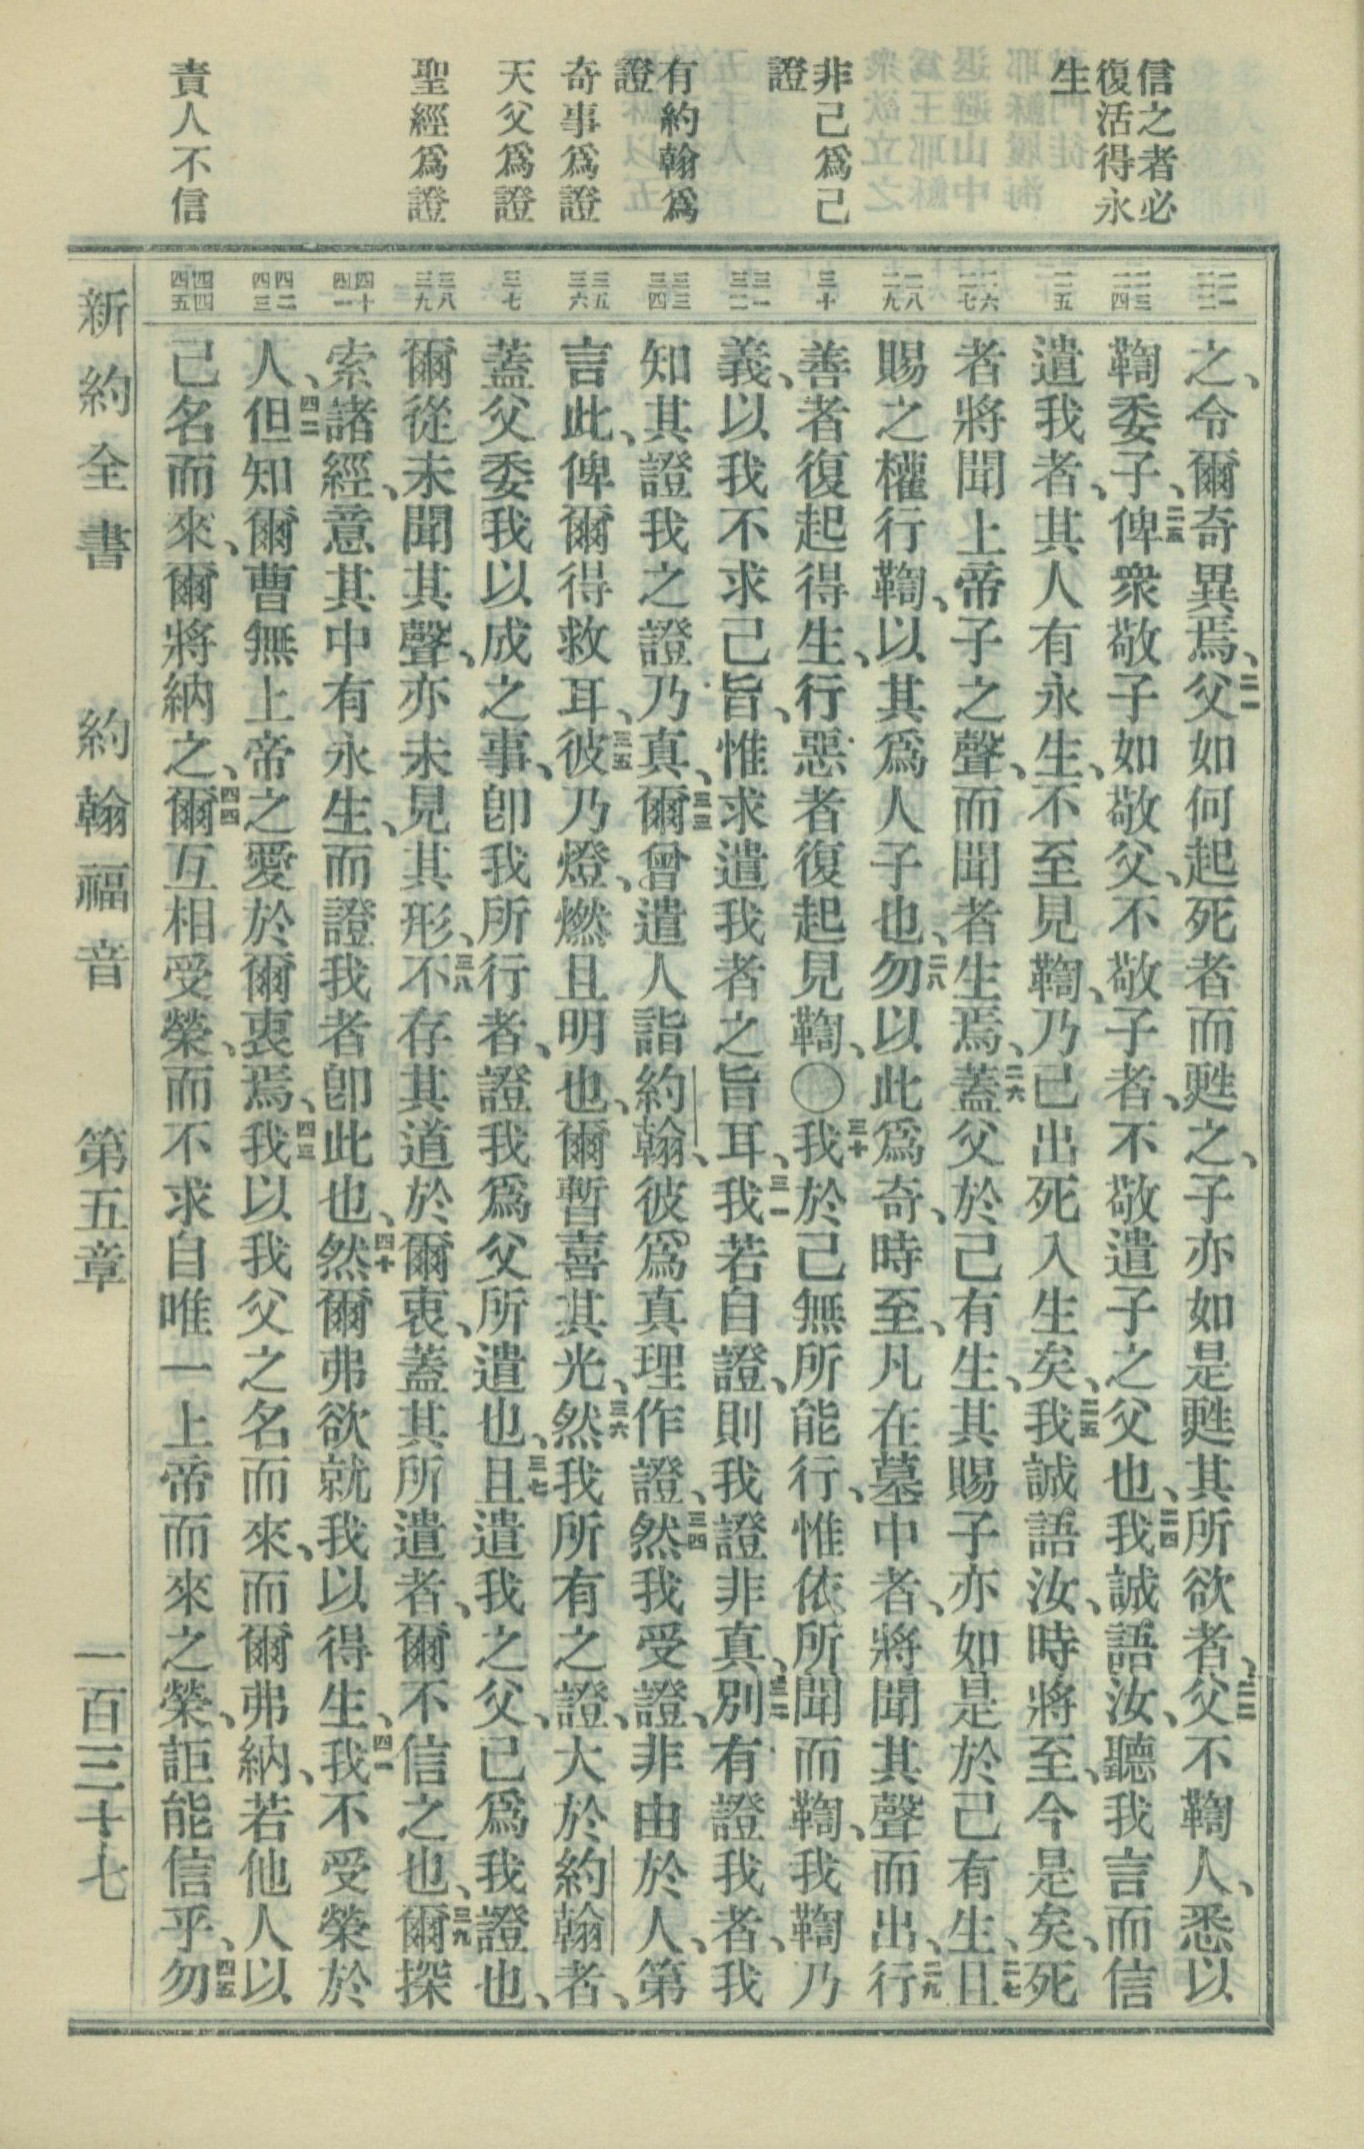 信之者必
復活得永
生
非己爲己
證
有約翰爲
證
奇事爲證
天父爲證
聖經爲證
責人不信
二一
二二
二三
二四
二五
二六
二七
二八
二九
三十
三一
三二
三三
三四
三五
三六
三七
三八
三九
四十
四一
四二
四三
四四
四五
之、令爾奇異焉、二一父如何起死者而甦之、子亦如是甦其所欲者、二二父不鞫人、悉以
鞫委子、二三俾衆敬子如敬父、不敬子者、不敬遣子之父也、二四我誠語汝、聽我言而信
遣我者、其人有永生、不至見鞫、乃已出死入生矣、二五我誠語汝、時將至、今是矣、死
者將聞上帝子之聲、而聞者生焉、二六蓋父於己有生、其賜子亦如是於己有生、二七且
賜之權行鞫、以其爲人子也、二八勿以此爲奇、時至、凡在墓中者、將聞其聲而出、二九行
善者復起得生、行惡者復起見鞫、〇三十我於己無所能行、惟依所聞而鞫、我鞫乃
義、以我不求己旨、惟求遣我者之旨耳、三一我若自證、則我證非真、三二別有證我者、我
知其證我之證乃真、三三爾曾遣人詣約翰、彼爲真理作證、三四然我受證、非由於人、第
言此、俾爾得救耳、三五彼乃燈、燃且明也、爾暫喜其光、三六然我所有之證、大於約翰者、
蓋父委我以成之事、卽我所行者、證我爲父所遣也、三七且遣我之父、已爲我證也、
爾從未聞其聲、亦未見其形、三八不存其道於爾衷、蓋其所遣者、爾不信之也、三九爾探
索諸經、意其中有永生、而證我者卽此也、四十然爾弗欲就我以得生、四一我不受榮於
人、四二但知爾曹無上帝之愛於爾衷焉、四三我以我父之名而來、而爾弗納、若他人以
己名而來、爾將納之、四四爾互相受榮、而不求自唯一上帝而來之榮、詎能信乎、四五勿
新約全書 約翰福音 第五章 一百三十七